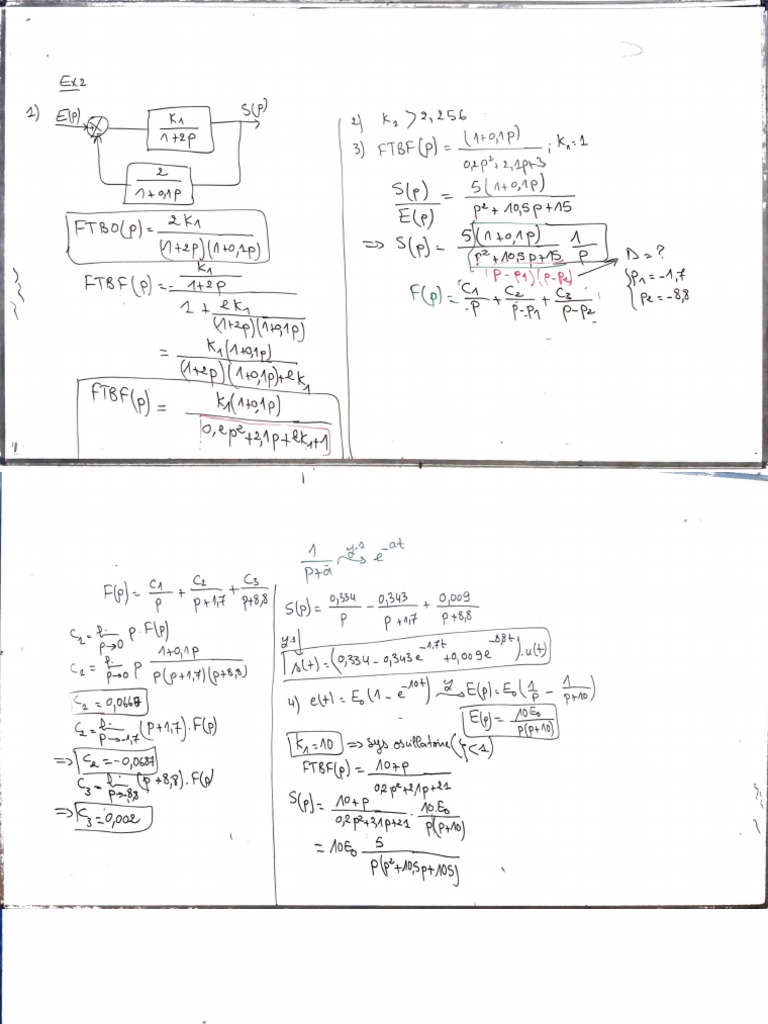 Ex2
1)
E(p)
S(p)
K1/(1+2p)
2/(1+0,1p)
FTBO(p) = 2K1/((1+2p)(1+0,1p))
FTBF(p) = (K1/(1+2p))/(1 + 2K1/((1+2p)(1+0,1p)))
= K1(1+0,1p)/((1+2p)(1+0,1p)+2K1)
FTBF(p) = K1(1+0,1p)/(0,2p²+2,1p+2K1+1)
2) K1 > 2,256
3) FTBF(p) = (1+0,1p)/(0,2p²+2,1p+3) ; K1=1
S(p)/E(p) = 5(1+0,1p)/(p²+10,5p+15)
=> S(p) = 5(1+0,1p)/(p²+10,5p+15) 1/p
(p-p1)(p-p2)
Δ=?
{p1=-1,7
{p2=-8,8
F(p) = C1/p + C2/(p-p1) + C3/(p-p2)
F(p) = C1/p + C2/(p+1,7) + C3/(p+8,8)
C1 = lim p→0 p.F(p)
C1 = lim p→0 p (1+0,1p)/(p(p+1,7)(p+8,8))
C1 = 0,0667
C2 = lim p→-1,7 (p+1,7).F(p)
=> C2 = -0,0687
C3 = lim p→-8,8 (p+8,8).F(p)
=> C3 = 0,002
1/(p+a) y-1 → e^-at
S(p) = 0,334/p - 0,343/(p+1,7) + 0,009/(p+8,8)
y-1
s(t) = (0,334-0,343e^-1,7t +0,009e^-8,8t).u(t)
4) e(t) = E0(1-e^-10t) → E(p) = E0(1/p - 1/(p+10))
E(p) = 10E0/(p(p+10))
K1=10 => sys oscillatoire (ξ<1)
FTBF(p) = (10+p)/(0,2p²+2,1p+21)
S(p) = (10+p)/(0,2p²+2,1p+21) . 10.E0/(p(p+10))
= 10E0 5/(p(p²+10,5p+105))